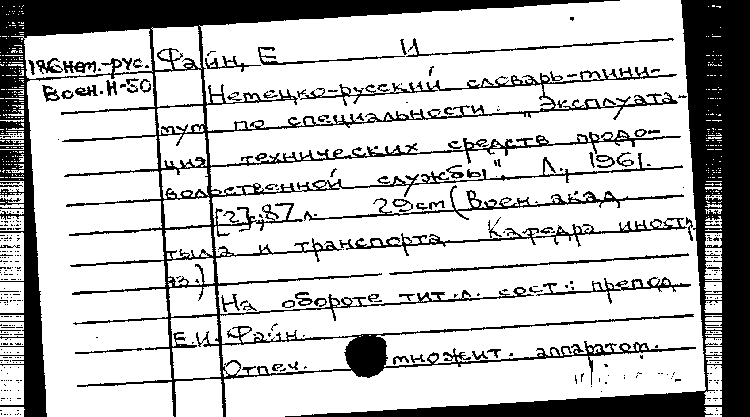 186нем.-рус. Файн, Е И
Воен.Н-50 Немецко-русский словарь-мини-
мум по специальности „Эксплуата-
ция технических средств продо-
вольственной службы". Л., 1961.
[2], 87 л. 29см (Воен. акад.
тыла и транспорта. Кафедра иностр.
яз.)
На обороте тит.л. сост.: препод.
Е.И. Файн.
Отпеч. множит. аппаратом.